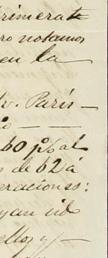 primera te
ro notamos
en la
v. París —
60 p% al
s de 62 á
eraciones:
yan id
ellos y